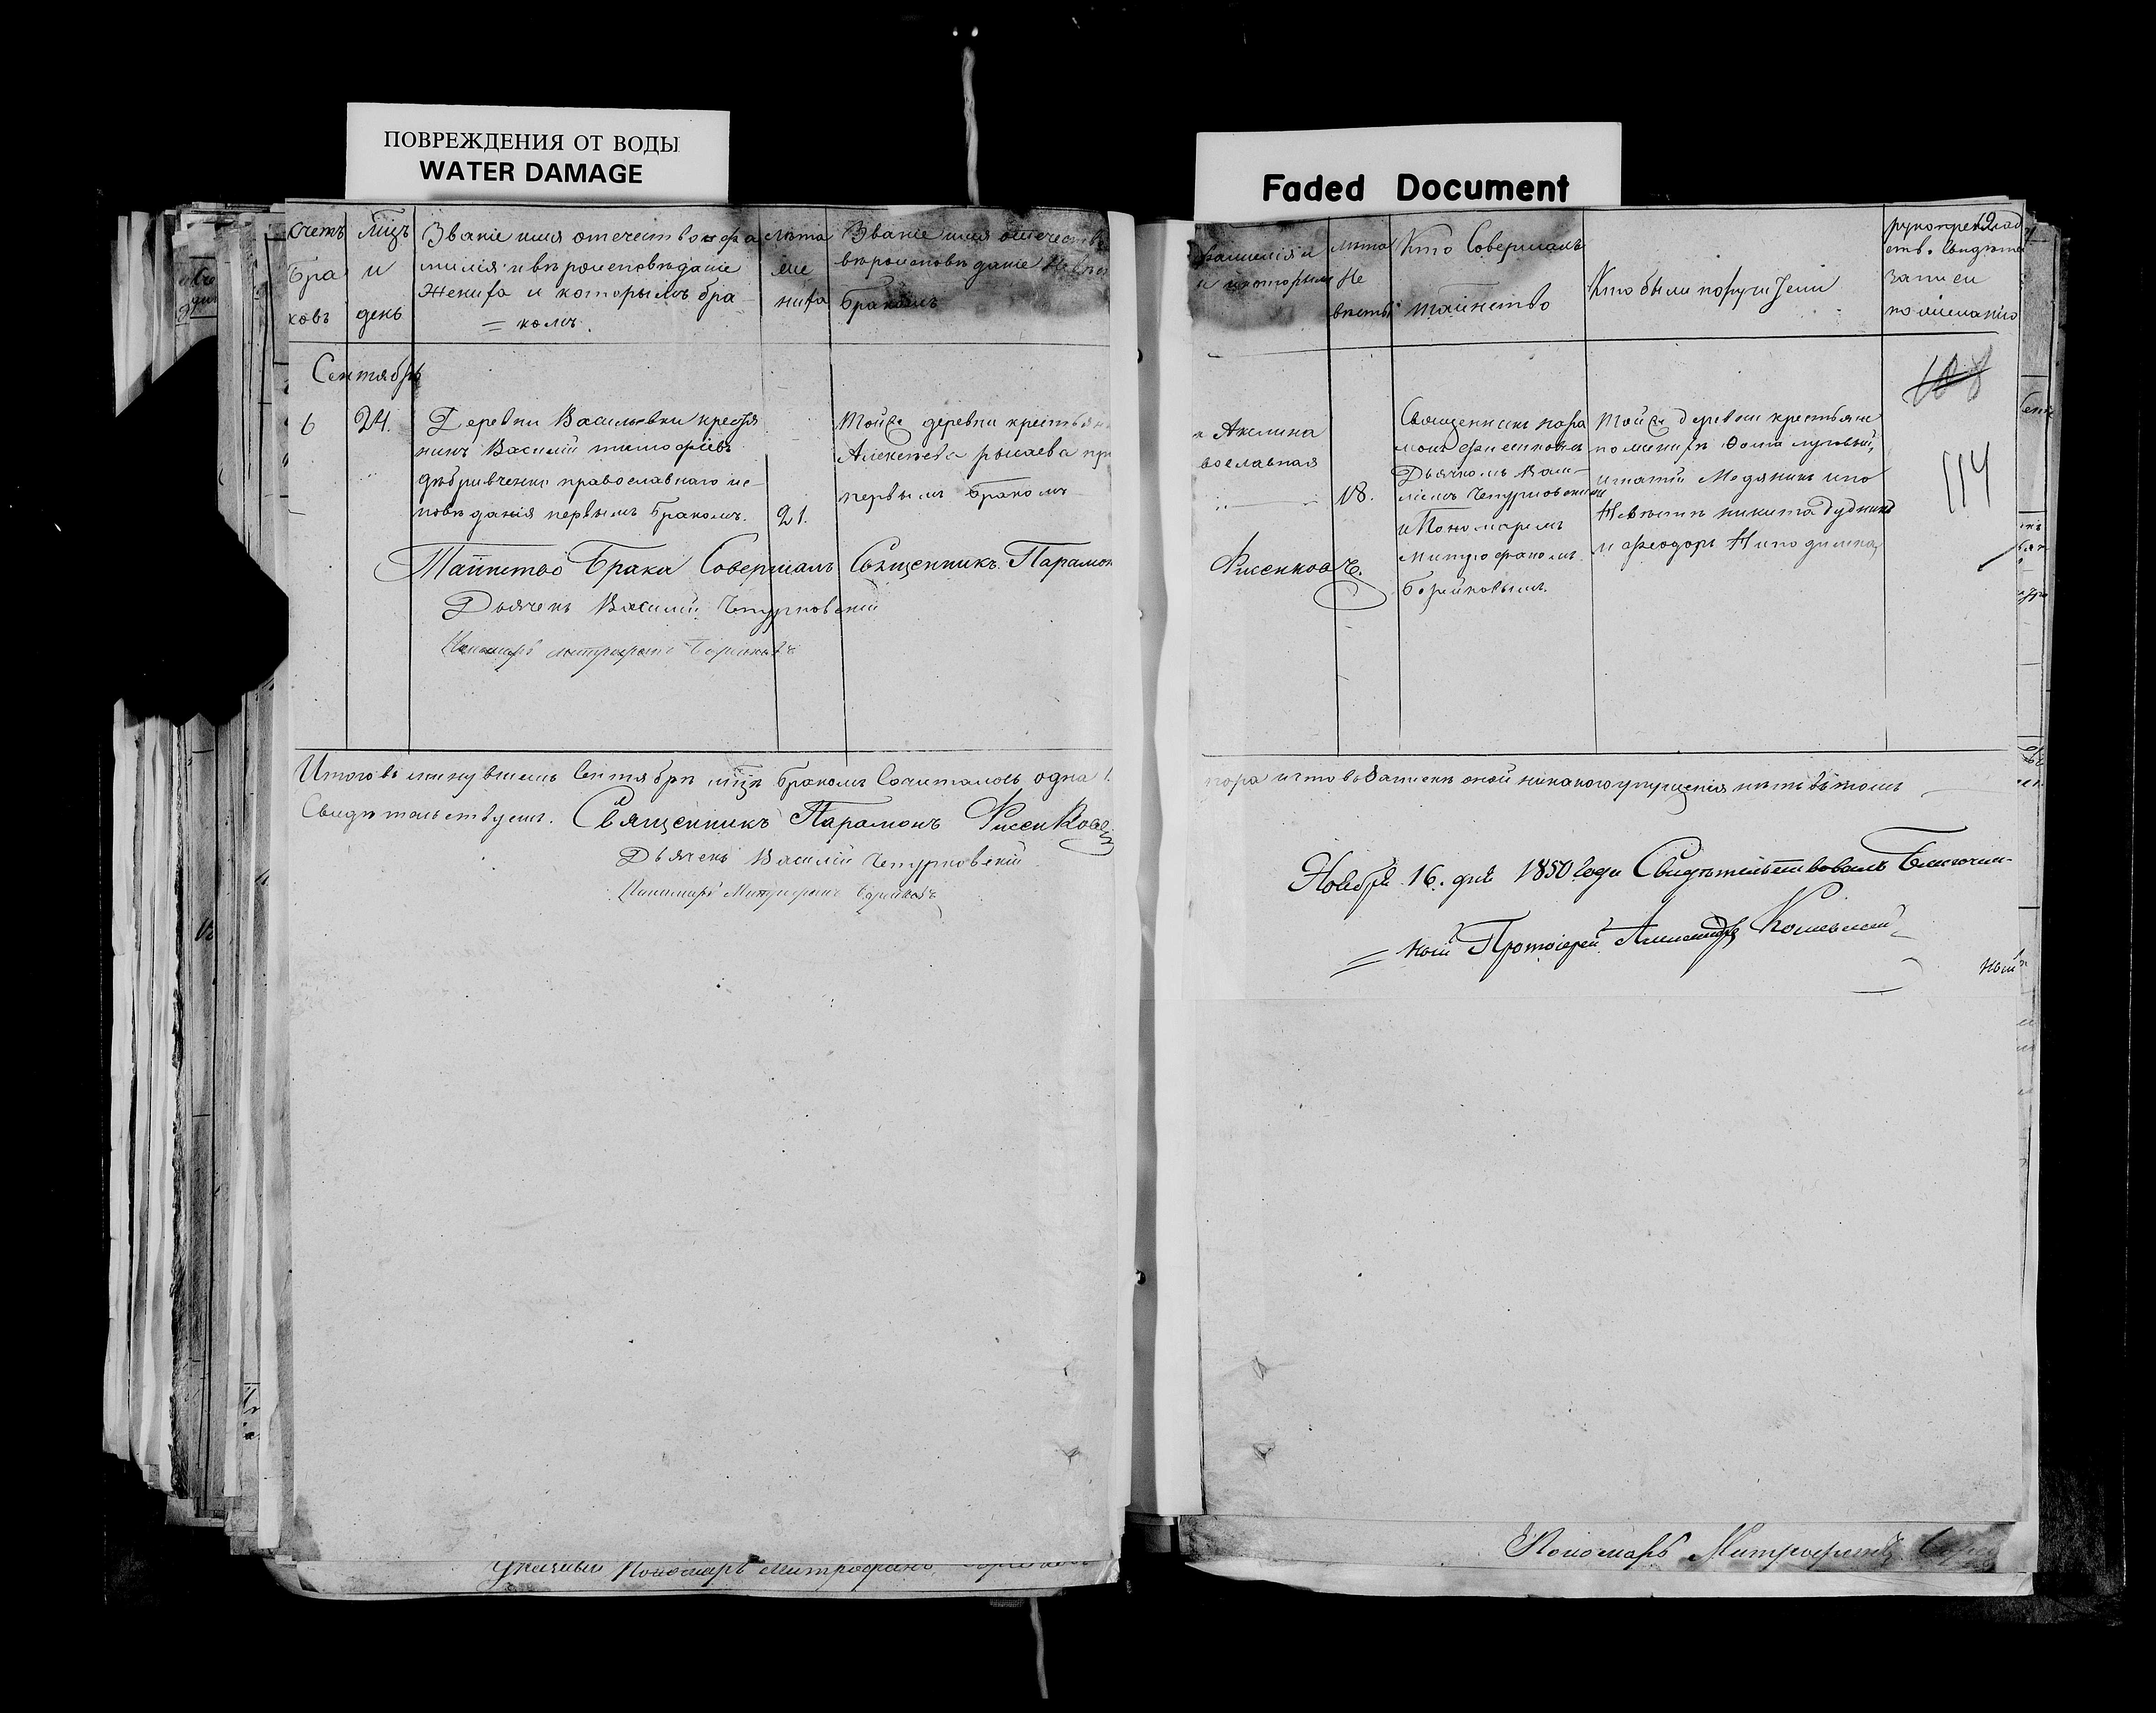 ПОВРЕЖДЕНИЯ ОТ ВОДЫ
WATER DAMAGE
Faded Document
Счетъ
Бра
ковъ
мцъ
и
день
Званіе имя отечество и фа
милія и вѣроисповѣданіе
Жениха и которымъ бра
= комъ.
лѣта
же
ниха
Званіе имя отечество
вѣроисповѣданіе Невѣс
бракомъ
фамилія и
и которым
лѣта
Не
вѣсты
Кто Совершалъ
таинство
Кто были поручители
рукоприклад
ств. свидѣте
записи
по желанію
Сентябрь
6
24.
Деревни Васильевки крестья
нинъ Василій тимофѣевъ
православнаго ис-
повѣданія первымъ бракомъ.
21.
Той же деревни крестьян
Алексѣева рыпаева пр
первымъ бракомъ
Акилина
вославная
18.
Священникъ пара
монъ фисенковъ
Дьячкомъ Васи-
ліемъ Четурновскимъ
и Пономаремъ
митрофаномъ
Борйковымъ.
Той же деревни крестьяне
по женихѣ Фома луговый,
игнатій Медяникъ и по
Невѣстѣ никита дудникъ
и феодоръ
108
114
Таинство Брака Совершалъ Священникъ Парамон
Фисенковъ.
Дьячекъ Василій Четурновскій
Пономарь митрофанъ Борйковъ
Итого въ минувшемъ Сентябрѣ мцѣ бракомъ Сочиталось одна 1.
пара и что въ записи оной никакого упущенія нѣтъ въ томъ
Свидѣтельствуемъ. Священникъ Парамонъ Фисенковъ
Дьячекъ Василій Четурновскій
Пономарь Митрофанъ Борйковъ
Ноября 16. дня 1850 года Свидѣтельствовалъ Благочин-
= ный Протоіерей Александръ
ный
Пономарь митрофанъ
Пономарь Митрофанъ